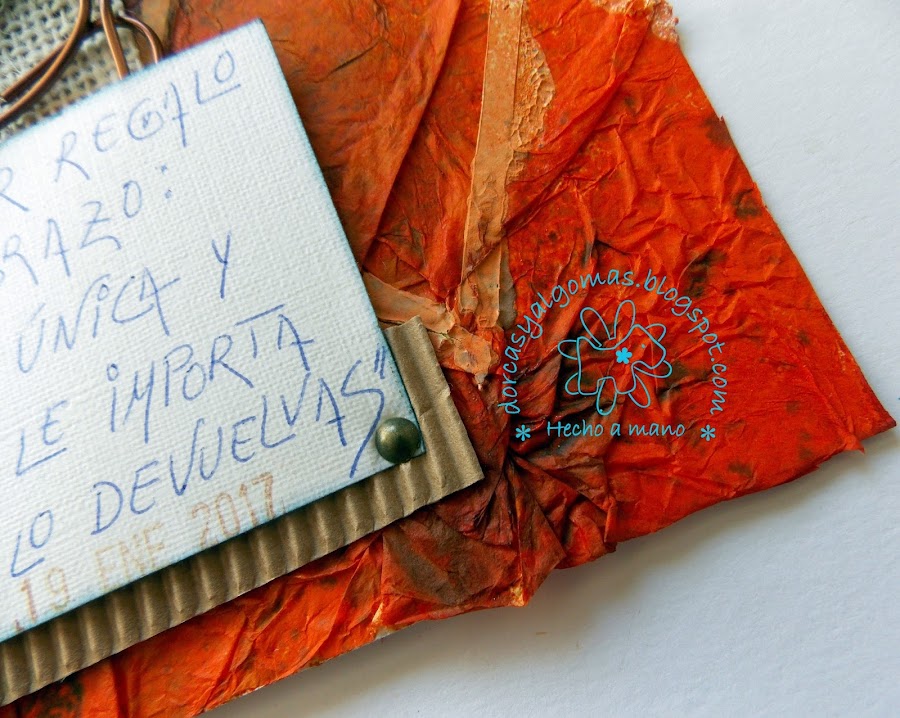 R REGALO
RAZO:
ÚNICA Y
LE IMPORTA
LO DEVUELVAS"
19 ENE 2017
dorcasyalgomas.blogspot.com
* Hecho a mano *